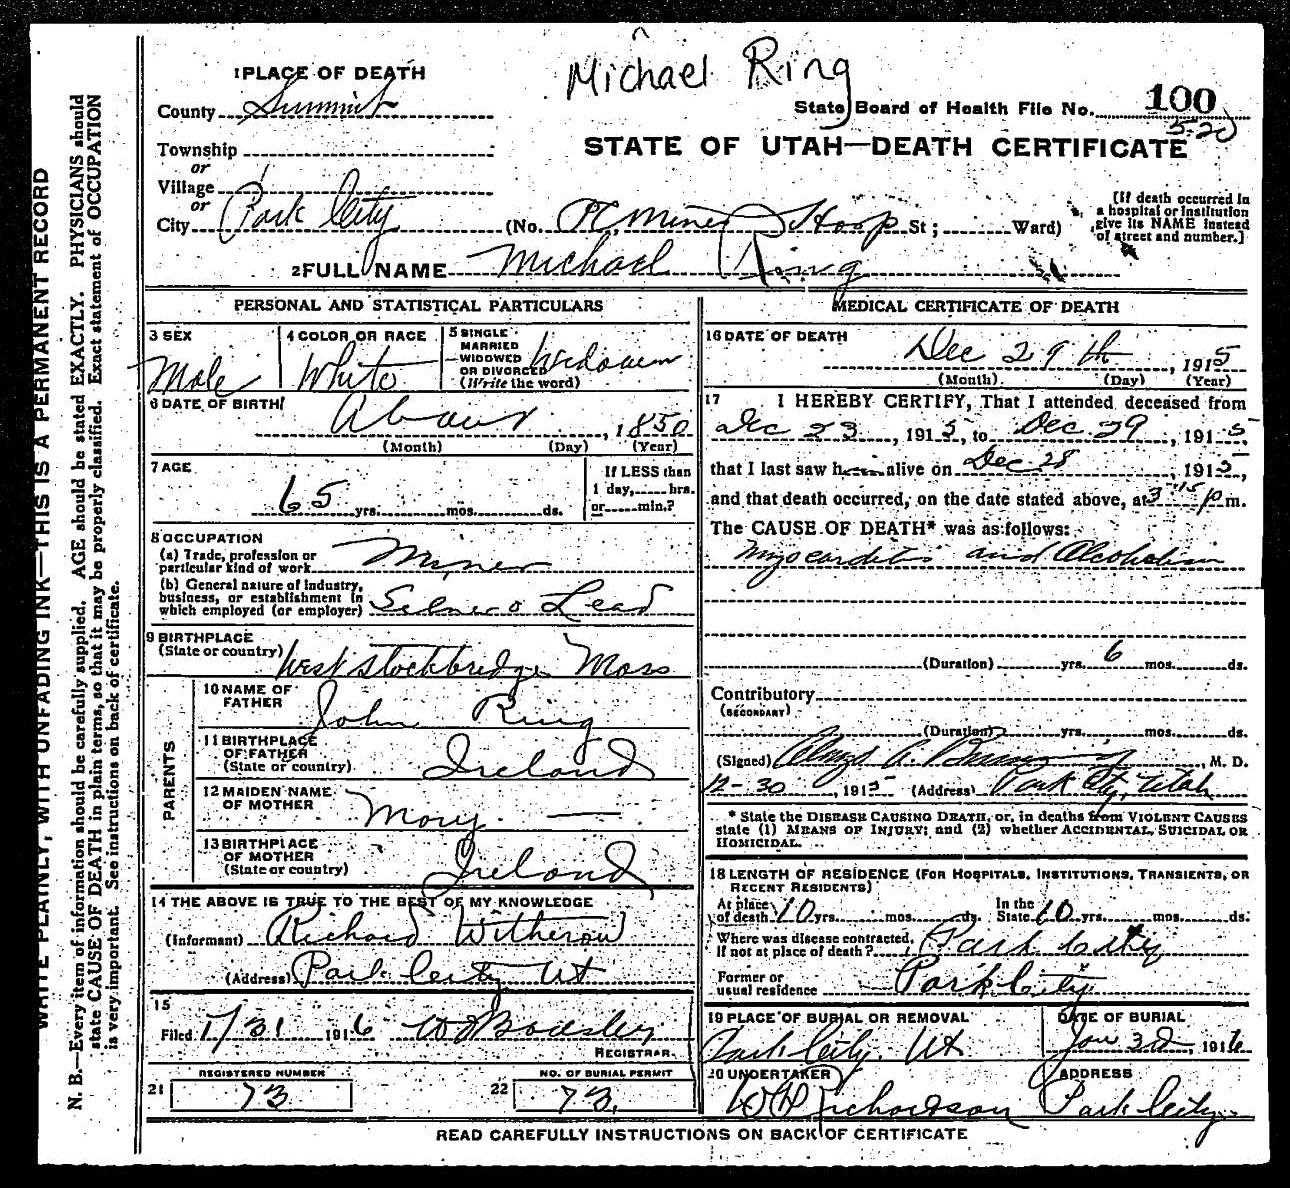 Michael Ring
1 PLACE OF DEATH
County Summit
State Board of Health File No. 100
5-20
Township
or
Village
or
City Park City
STATE OF UTAH—DEATH CERTIFICATE
(No. P.C. Miners Hosp St; Ward)
[If death occurred in a hospital or institution give its NAME instead of street and number.]
2 FULL NAME Michael Ring
PERSONAL AND STATISTICAL PARTICULARS
3 SEX
Male
4 COLOR OR RACE
White
5 SINGLE
MARRIED
WIDOWED
OR DIVORCED
(Write the word)
Widower
6 DATE OF BIRTH
About , 1850
(Month) (Day) (Year)
7 AGE
65 yrs. mos. ds.
If LESS than
1 day, hrs.
or min.?
8 OCCUPATION
(a) Trade, profession or
particular kind of work Miner
(b) General nature of industry,
business, or establishment in
which employed (or employer) Silver & Lead
9 BIRTHPLACE
(State or country) West Stockbridge Mass
PARENTS
10 NAME OF
FATHER John Ring
11 BIRTHPLACE
OF FATHER
(State or country) Ireland
12 MAIDEN NAME
OF MOTHER Mary —
13 BIRTHPLACE
OF MOTHER
(State or country) Ireland
14 THE ABOVE IS TRUE TO THE BEST OF MY KNOWLEDGE
(Informant) Richard Witherow
(Address) Park City Ut
15
Filed 1/31 1916
REGISTRAR.
REGISTERED NUMBER
21 73
NO. OF BURIAL PERMIT
22 73.
MEDICAL CERTIFICATE OF DEATH
16 DATE OF DEATH
Dec 29th , 1915
(Month) (Day) (Year)
17 I HEREBY CERTIFY, That I attended deceased from
Dec 23 , 1915, to Dec. 29 , 1915
that I last saw him alive on Dec. 28 , 1915,
and that death occurred, on the date stated above, at 3:15 p m.
The CAUSE OF DEATH* was as follows:
Myocarditis and Alcoholism
(Duration) yrs. 6 mos. ds.
Contributory
(SECONDARY)
(Duration) yrs. mos. ds.
(Signed) , M. D.
12-30 , 1915 (Address) Park City, Utah
* State the DISEASE CAUSING DEATH, or, in deaths from VIOLENT CAUSES
state (1) MEANS OF INJURY; and (2) whether ACCIDENTAL, SUICIDAL OR
HOMICIDAL.
18 LENGTH OF RESIDENCE (FOR HOSPITALS, INSTITUTIONS, TRANSIENTS, OR
RECENT RESIDENTS)
At place
of death 10 yrs. mos. ds.
In the
State 10 yrs. mos. ds.
Where was disease contracted,
if not at place of death? Park City
Former or
usual residence Park City
19 PLACE OF BURIAL OR REMOVAL
Park City Ut
DATE OF BURIAL
Jan 3d, 1916
20 UNDERTAKER
Richardson
ADDRESS
Park City
READ CAREFULLY INSTRUCTIONS ON BACK OF CERTIFICATE
WRITE PLAINLY, WITH UNFADING INK—THIS IS A PERMANENT RECORD
N. B.—Every item of information should be carefully supplied. AGE should be stated EXACTLY. PHYSICIANS should
state CAUSE OF DEATH in plain terms, so that it may be properly classified. Exact statement of OCCUPATION
is very important. See instructions on back of certificate.